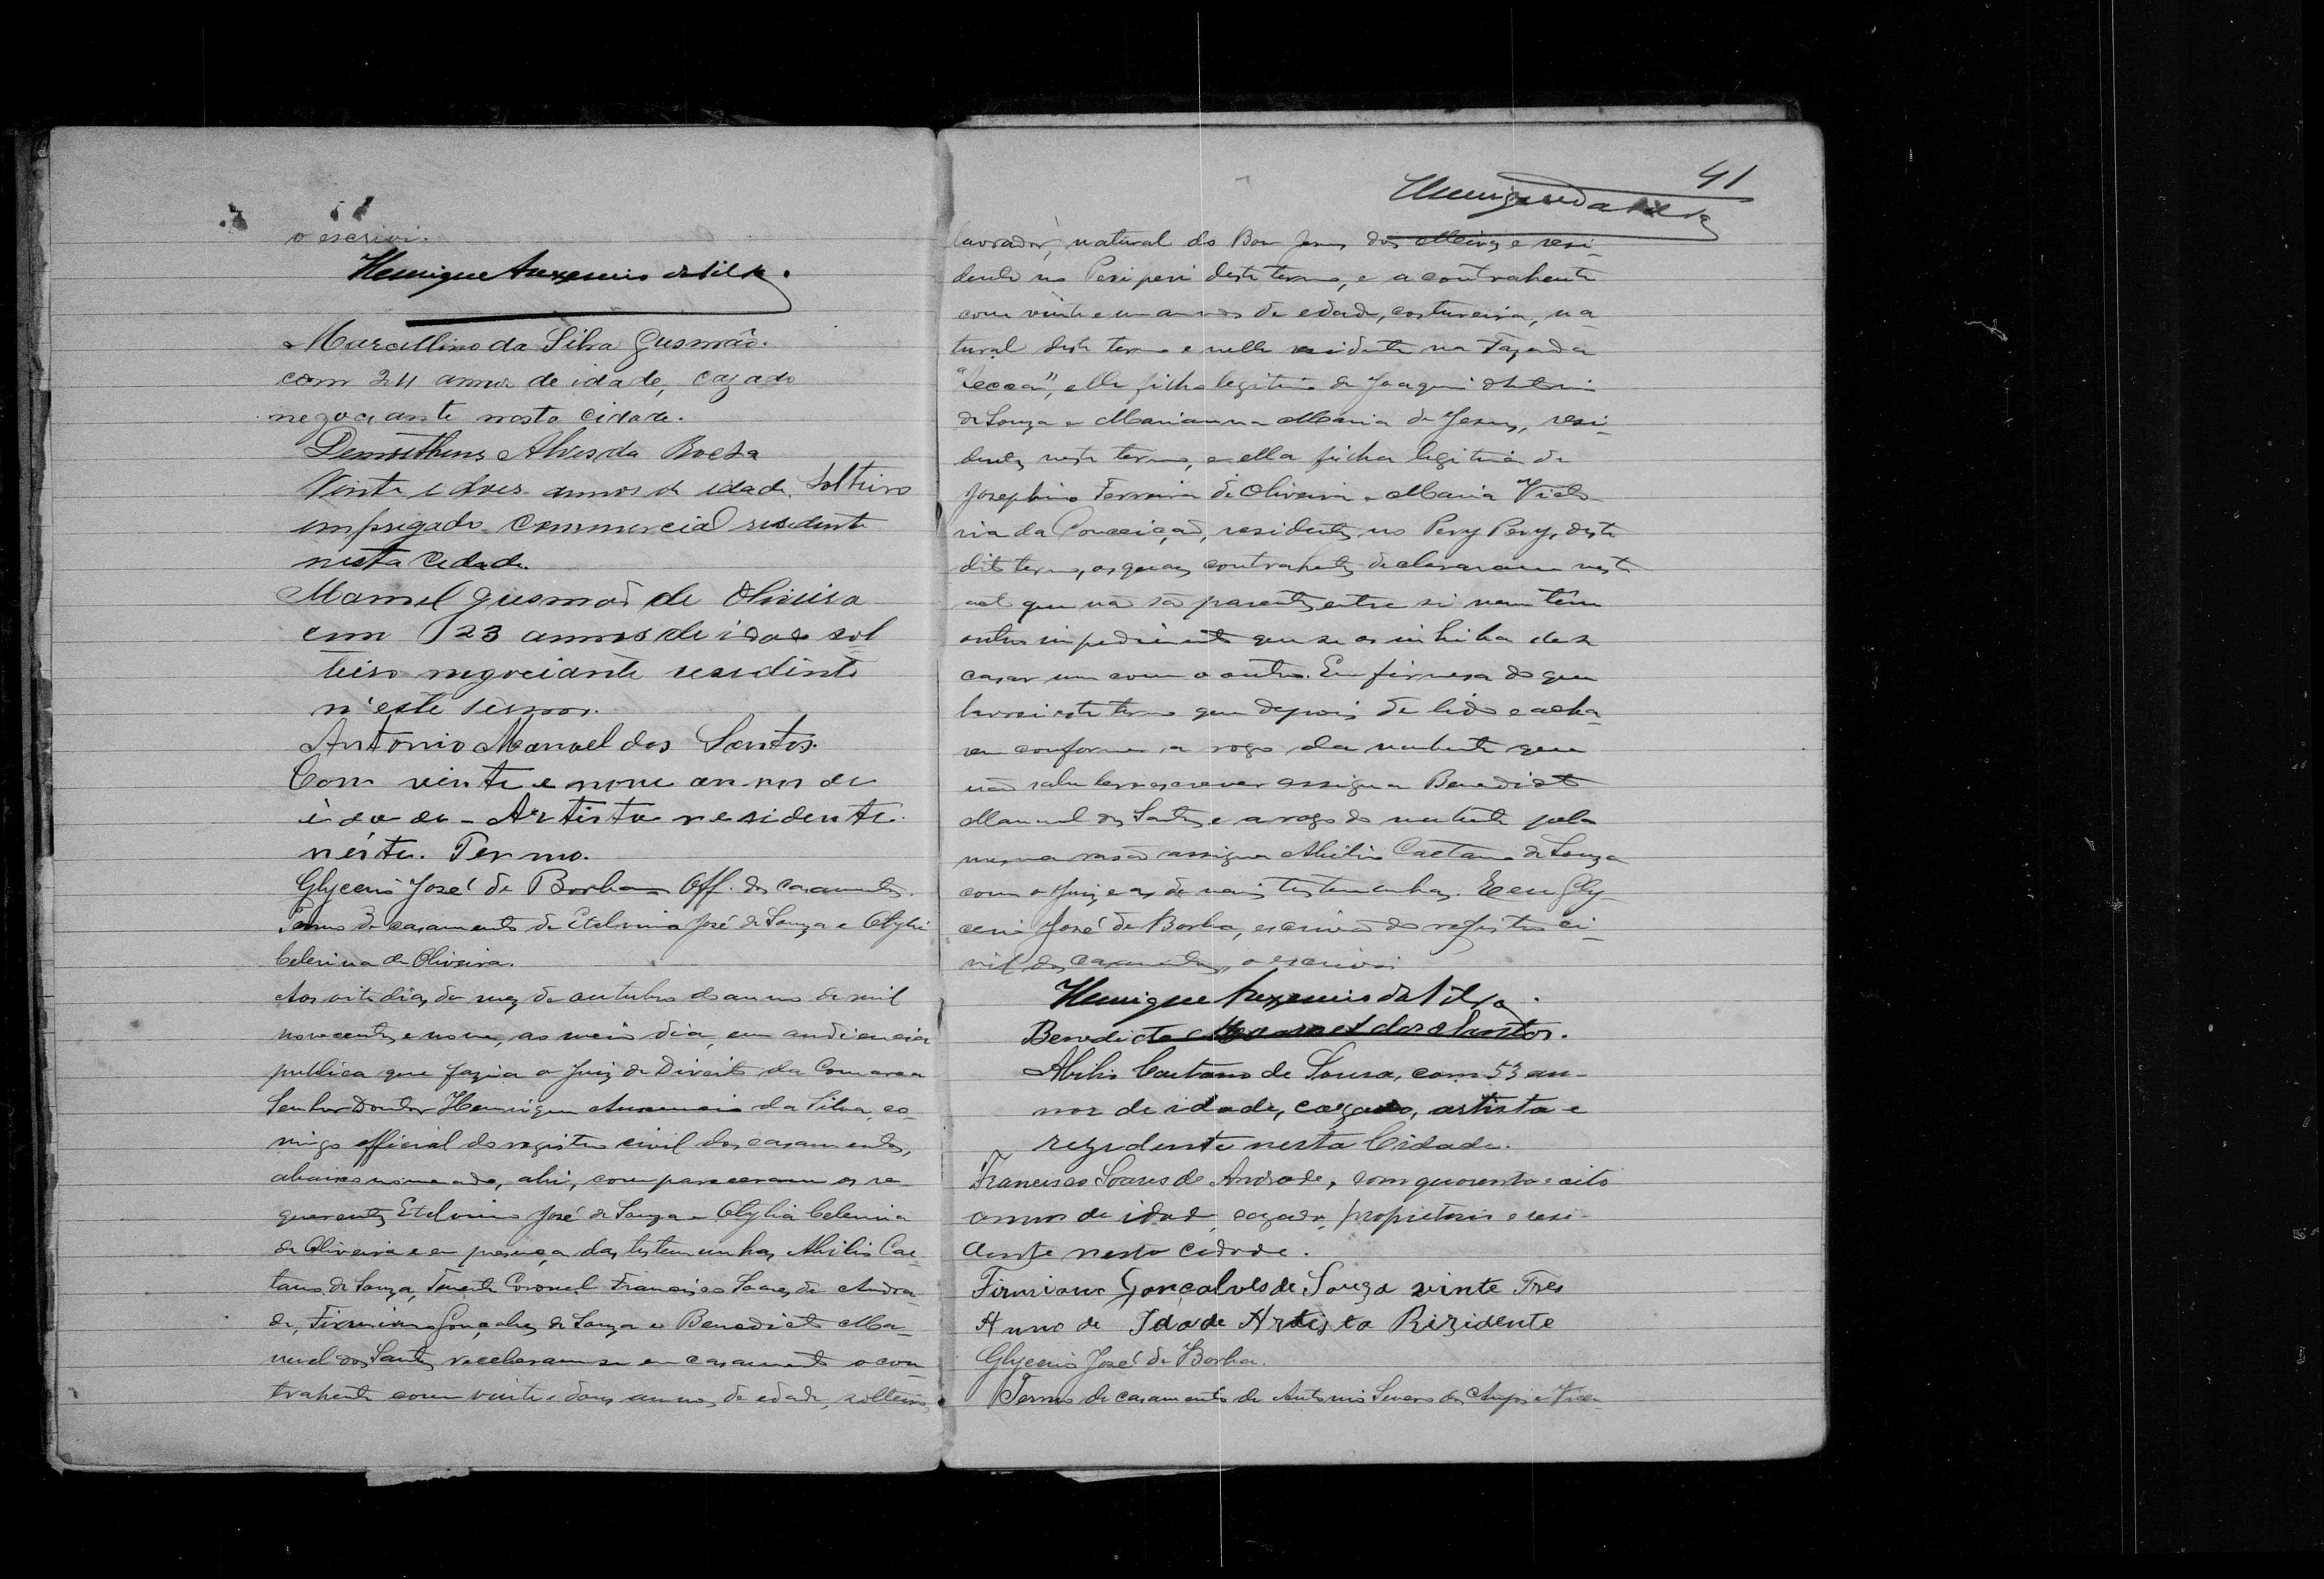 o escrivi.
Henrique Auxencio da Silva.
Marcellino da Silva Gusmão.
com 24 annos de idade, cazado
negociante nesta cidade.
Demosthenes Alves da Rocha
Vinte e dois annos de edade. Solteiro
empregado Commercial residente
nesta cidade.
Manoel Gusmão de Oliveira
com 23 annos de idade sol
teiro negociante residente
n'este termo.
Antonio Manoel dos Santos.
Com vinte e nove annos de
idade - Artista residente.
néste. Termo.
Glycerio José de Borba Off. dos casamentos.
Termo de casamento de Etelvino José de Souza e Olylia
Celerina de Oliveira.
Aos oito dias do mez de outubro do anno de mil
novecentos e nove, ao meio dia, em audiencia
publica que fazia o Juiz de Direito da Comarca
Senhor Doutor Henrique Auxencio da Silva, co-
migo official do registro civil dos casamentos,
abaixo nomeado, ahi, compareceram os re-
querentes Etelvino José de Souza e Olylia Celerina
de Oliveira e em presença das testemunhas, Abilio Cae-
tano de Souza, Tenente Coronel Francisco Soares de Andra-
de, Firmiano Gonçalves de Souza e Benedicto Ma-
noel dos Santos receberam-se em casamento o con-
trahente com vinte e dous annos de edade, solteiro,
41
Henrique da Silva
lavrador, natural do Bom Jesus dos Meiras e resi-
dente no Peripери deste termo, e a contrahente
com vinte e um annos de edade, costureira, na-
tural deste termo e nelle residente na Fazenda
elle filho legitimo de Joaquim Antonio
de Souza e Marianna Maria de Jesus, resi-
dentes neste termo, e ella filha legitima de
Josephino Ferreira de Oliveira e Maria Victo-
ria da Conceição, residentes no Pery Pery, deste
dito termo, os quaes contrahentes declararam neste
acto que não são parentes entre si nem têm
outro impedimento que se os inhiba de se
casar um com o outro. Em firmesa do que
lavrei este termo que depois de lido e acha-
rem conforme a rogo da nubente que
não sabe ler e escrever assigna Benedicto
Manoel dos Santos e a rogo do nubente pela
mesma rasão assigna Abilio Caetano de Souza
com o Juiz e as de mais testemunhas. E eu Gly-
cerio José de Borba, escrivão do registro ci-
vil dos casamentos, o escrivi
Henrique Auxencio da Silva.
Benedicto Manoel dos Santos.
Abilio Caetano de Sousa, com 53 an-
nos de idade, cazado, artista e
rezidente nesta Cidade.
Francisco Soares de Andrade, com quarenta e oito
annos de idade, cazado, proprietario e resi-
dente nesta cidade.
Firmiano Gonçalves de Souza vinte Tres
Anno de Idade Artista Rizidente
Glycerio José de Borba.
Termo de casamento de Antonio Severo dos Anjos e Vicen-